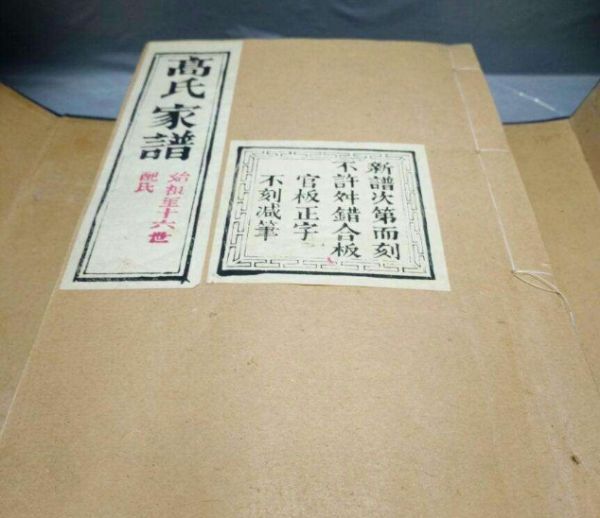 高氏家譜
始祖至十六世
配氏
新譜次第而刻
不許舛錯合板
官板正字
不刻減筆